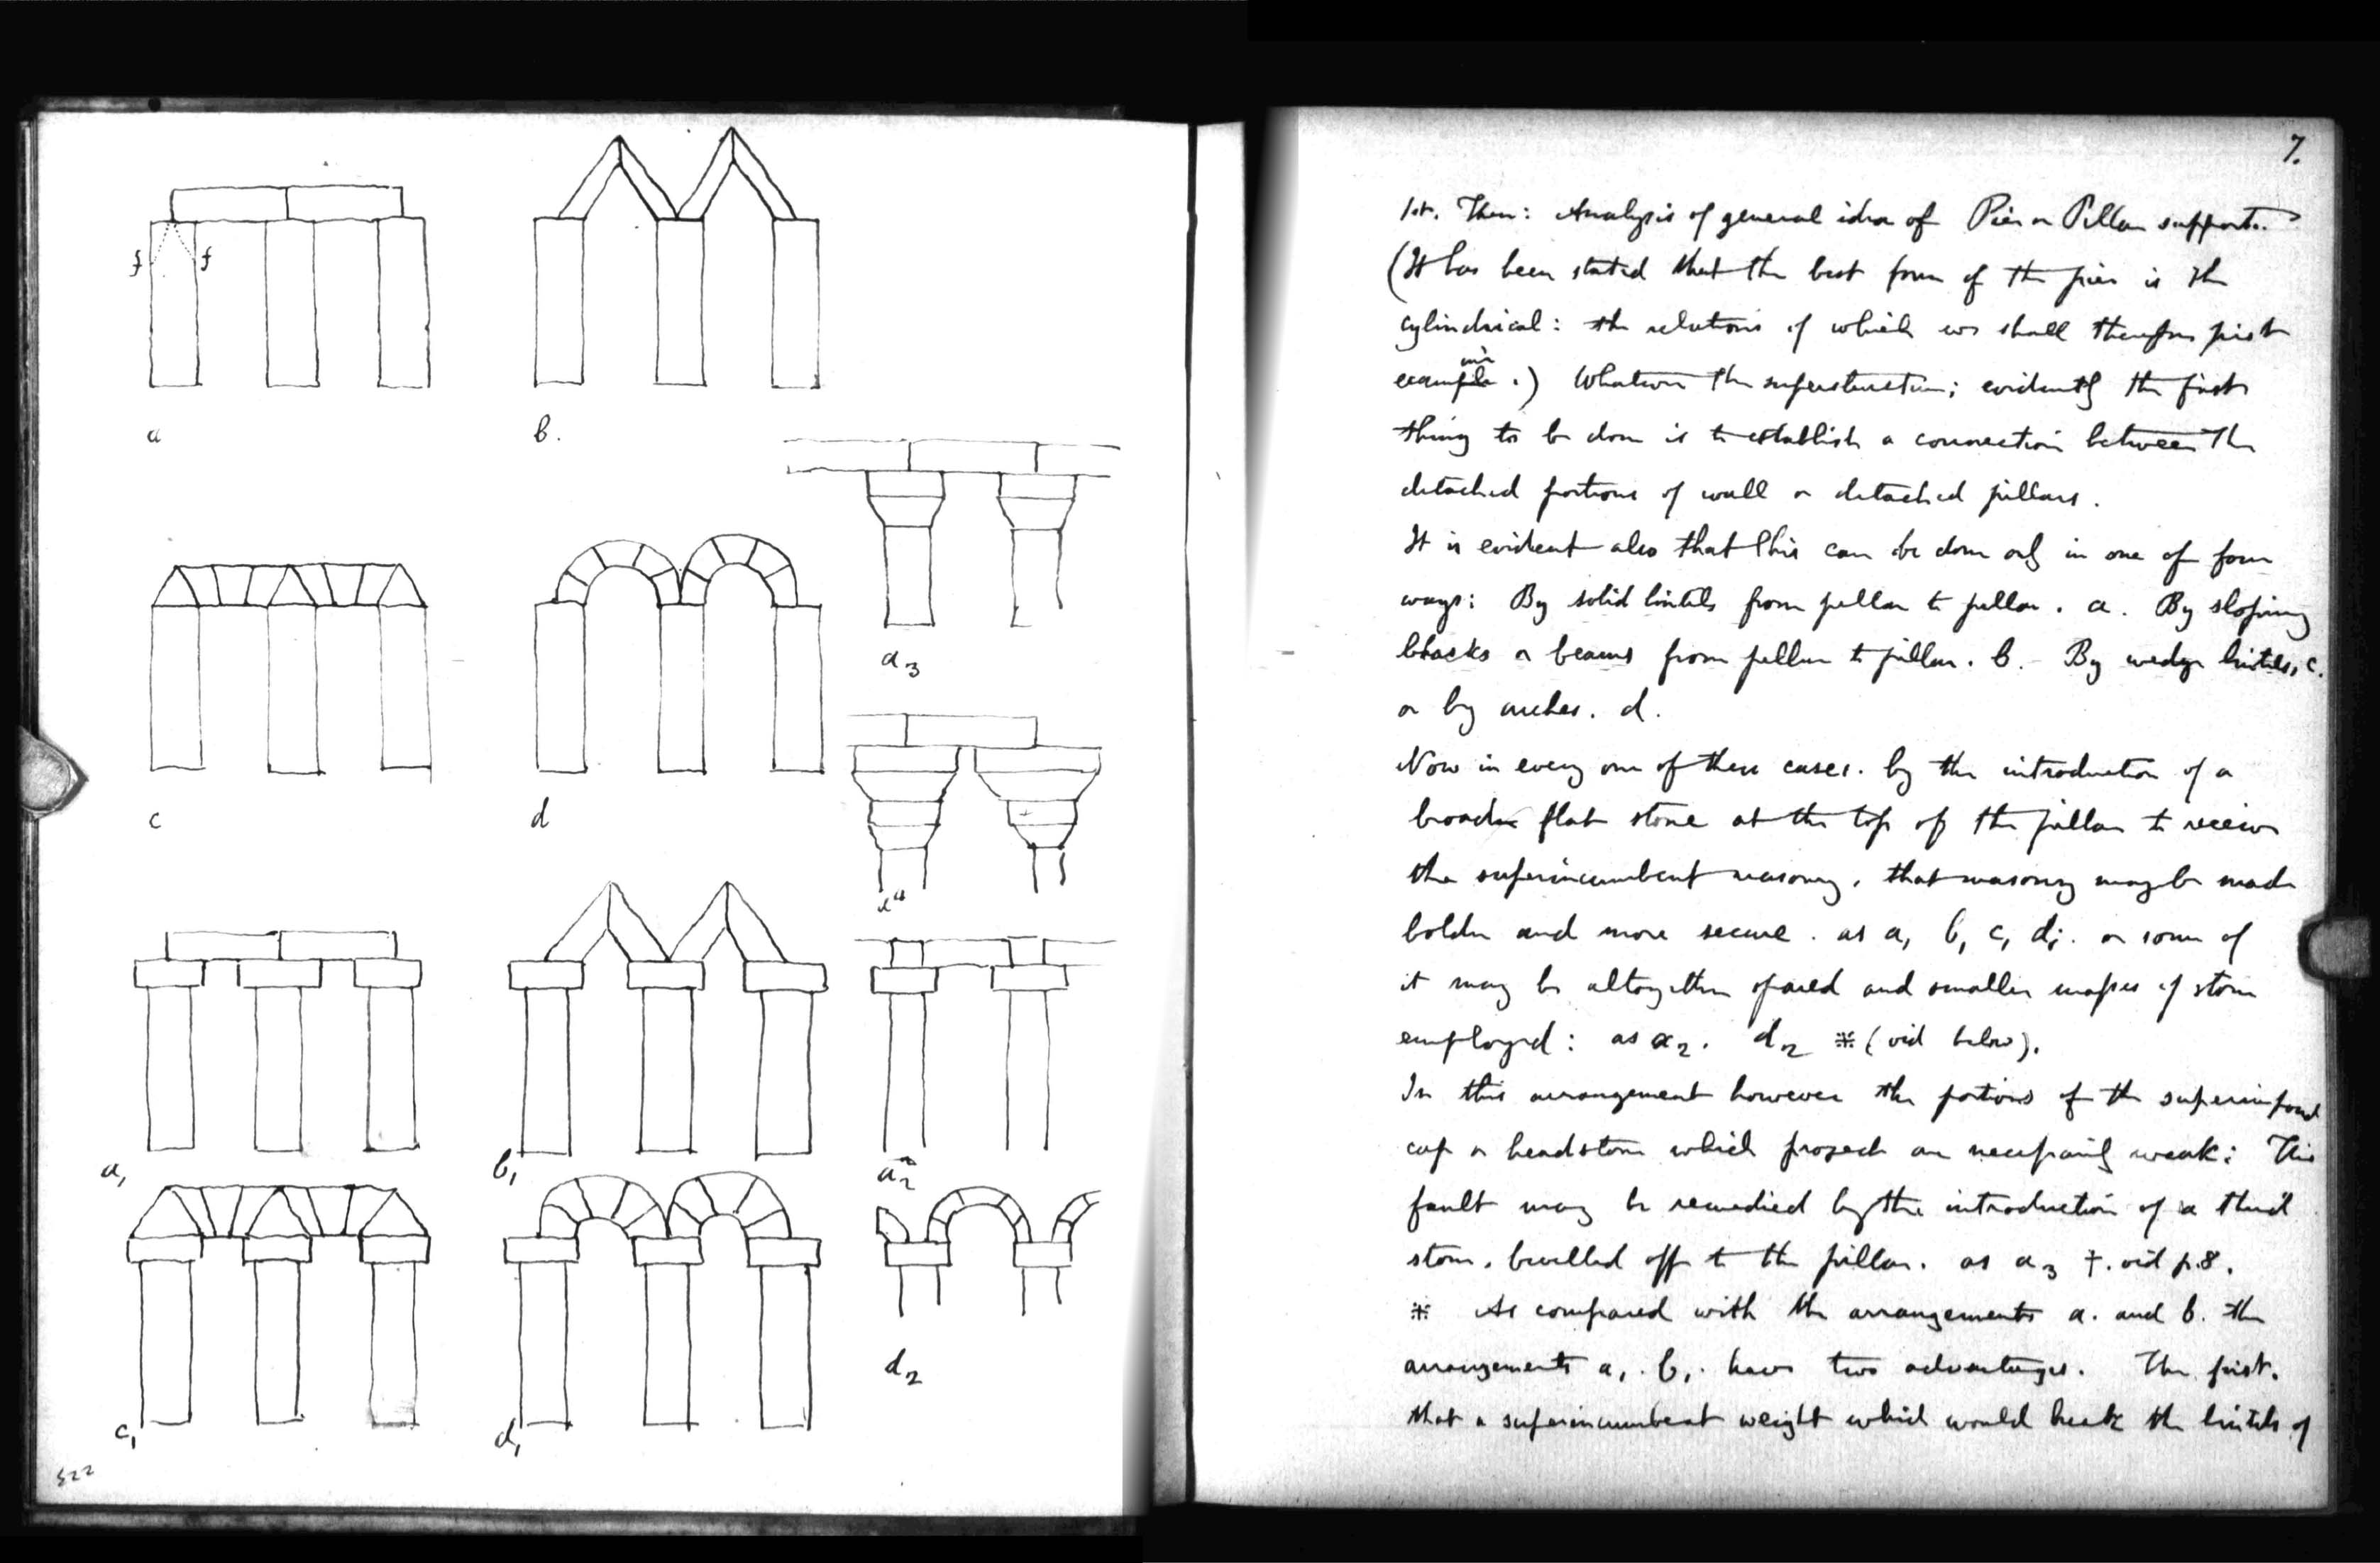 f f
a
b.
a3
c
d
a4
a,
b,
a2
c,
d,
d2
7.
1st. Then: Analysis of general idea of Pier or Pillar support.
(It has been stated that the best form of the pier is the
cylindrical: the relations of which we shall therefore first
examine.) Whatever the superstructure; evidently the first
thing to be done is to establish a connection between the
detached portions of wall or detached pillars.
It is evident also that this can be done only in one of four
ways: By solid lintels from pillar to pillar. a. By sloping
blocks or beams from pillar to pillar. b. – By wedge lintels, c.
or by arches. d.
Now in every one of these cases. by the introduction of a
broader flat stone at the top of the pillar to receive
the superincumbent masonry, that masonry may be made
bolder and more secure. as a, b, c, d,. or some of
it may be altogether spared and smaller masses of stone
employed: as a2. d2 ※ (vid below).
In this arrangement however the portions of the superimposed
cap or headstone which project are necessarily weak: This
fault may be remedied by the introduction of a third
stone. bevelled off to the pillar. as a3 †. vid p.8.
※ As compared with the arrangements a. and b. the
arrangements a,. b,. have two advantages. The first.
that a superincumbent weight which would break the lintels of